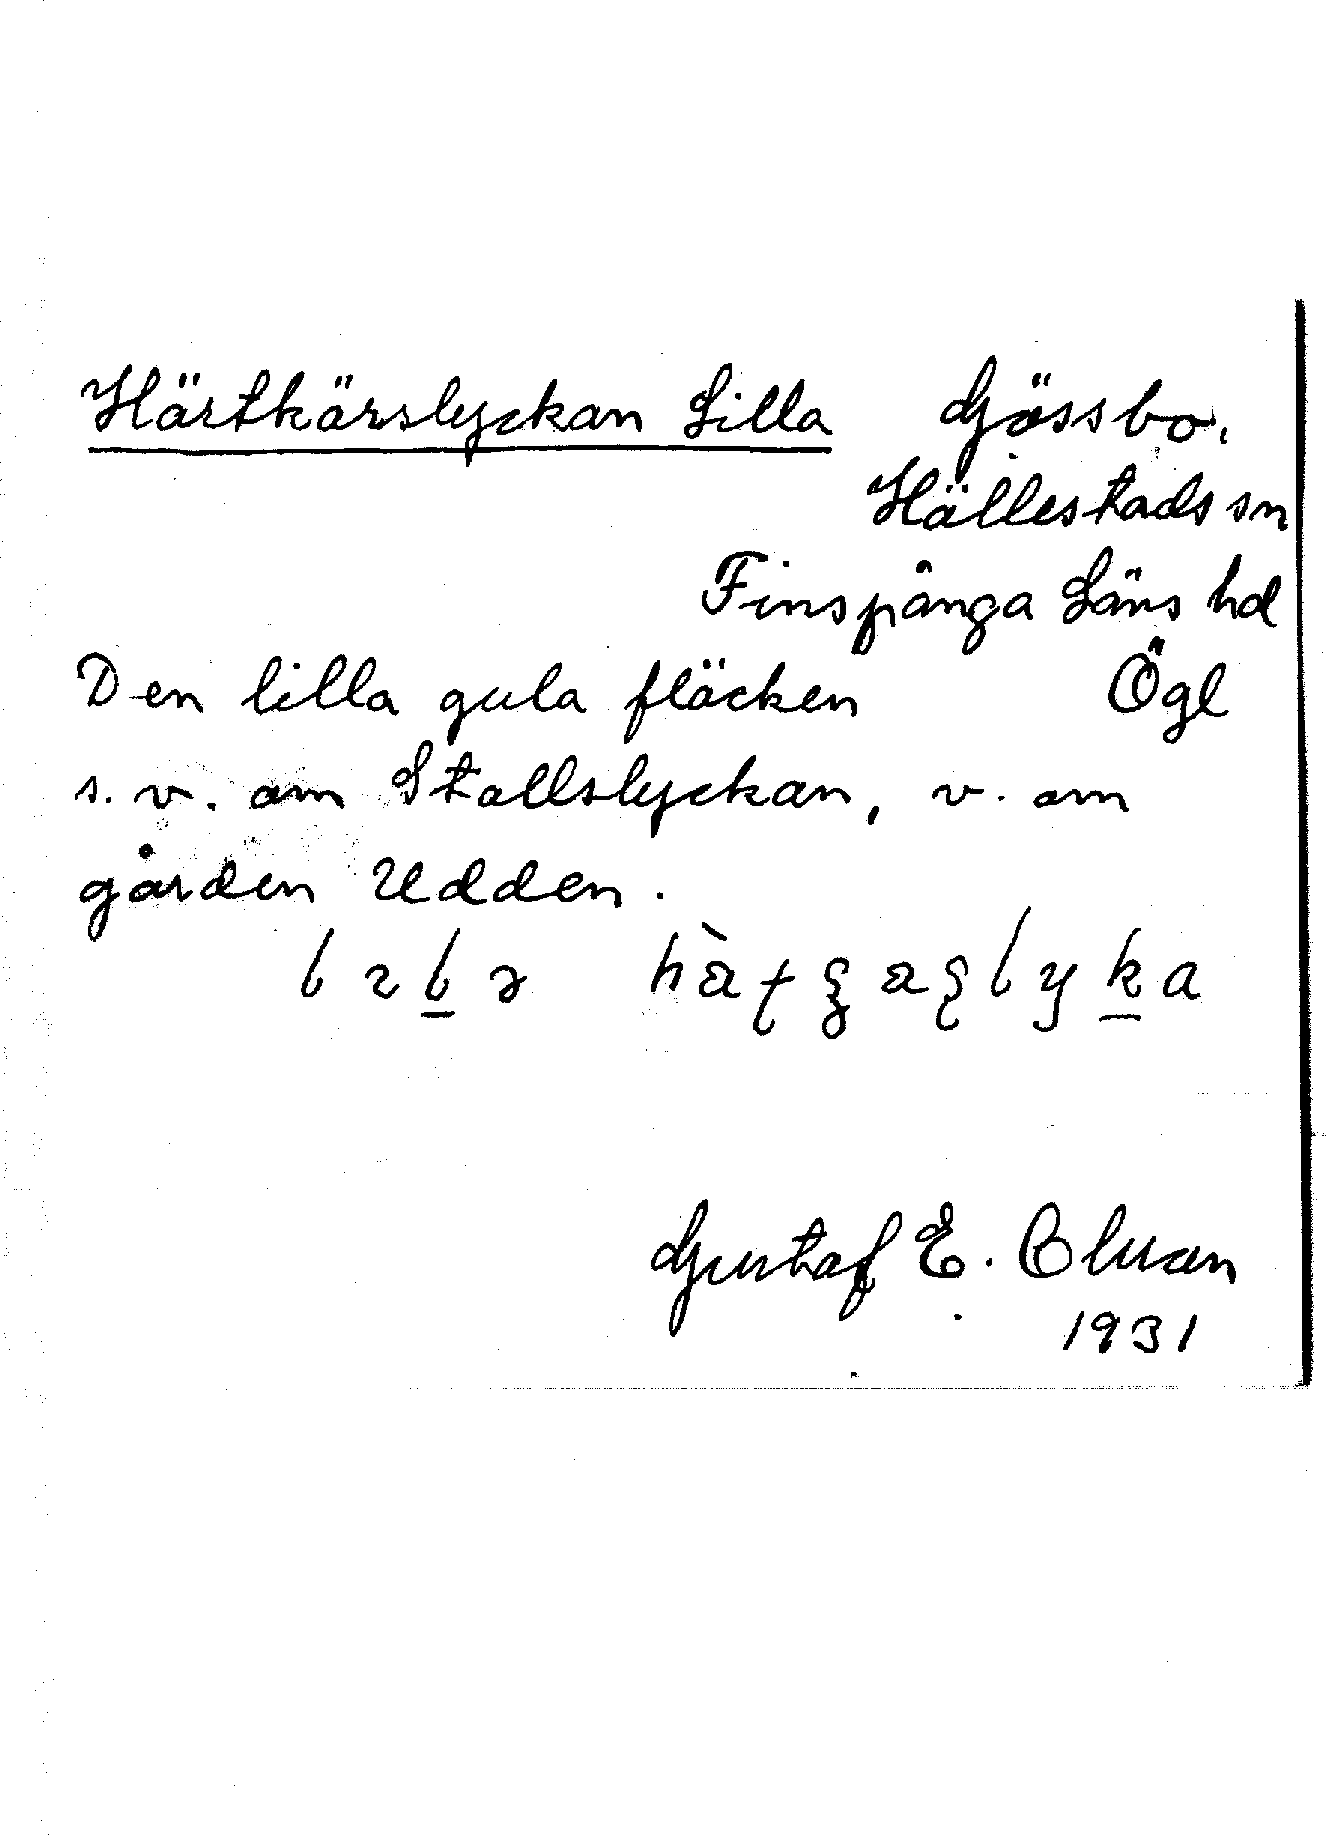 Härtkärslyckan Lilla Gössbo.
Hällestads sn
Finspånga Läns hd
Den lilla gula fläcken Ögl
s. v. om Stallslyckan, v. om
gården Udden.
Gustaf E.
1931